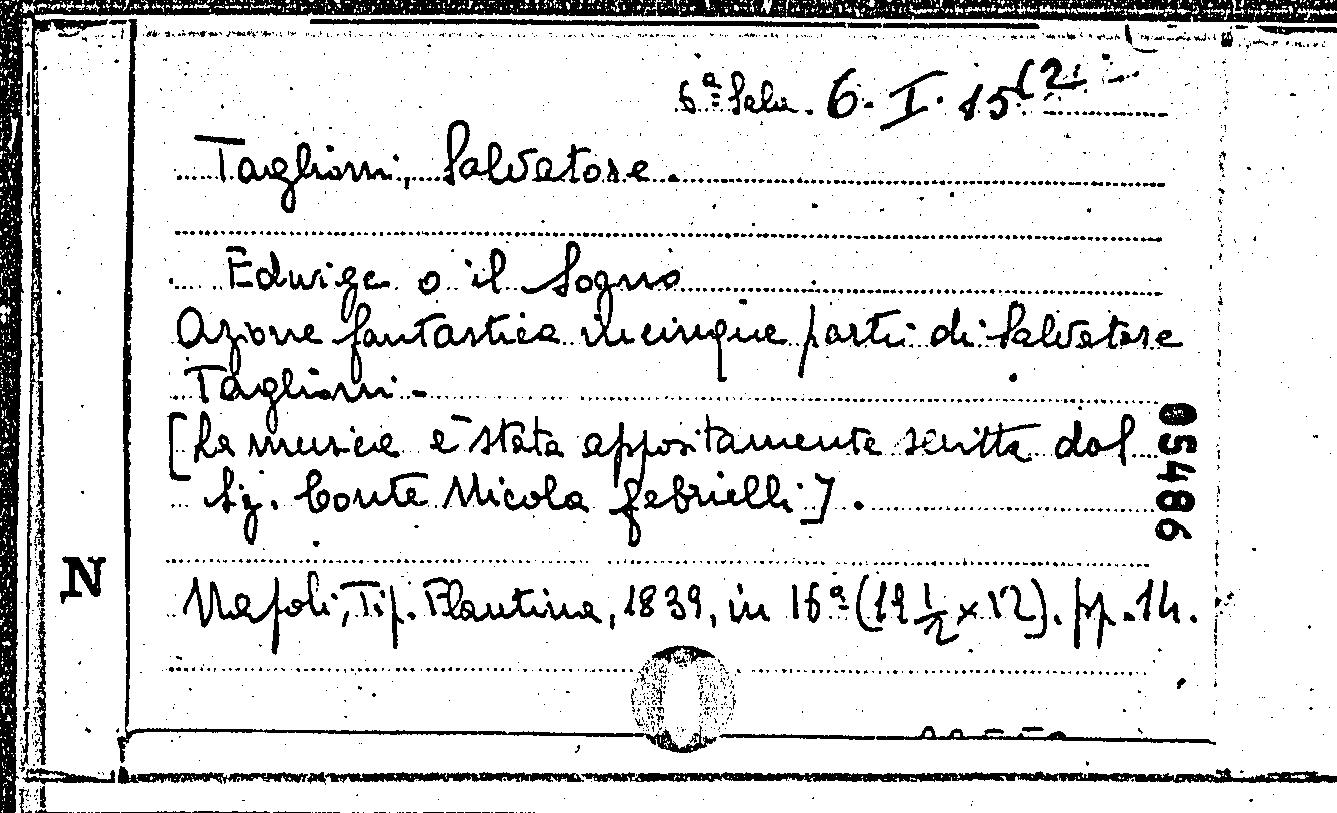 6ª Sala. 6. I. 15(2.
Taglioni, Salvatore.
Edwige o il Sogno
Azione fantastica in cinque parti di Salvatore
Taglioni -
[La musica è stata appositamente scritta dal
Sig. Conte Nicola Gabrielli].
Napoli, Tip. Plautina, 1839, in 16ª (19 1/2 x 12). pp. 14.
N
05486